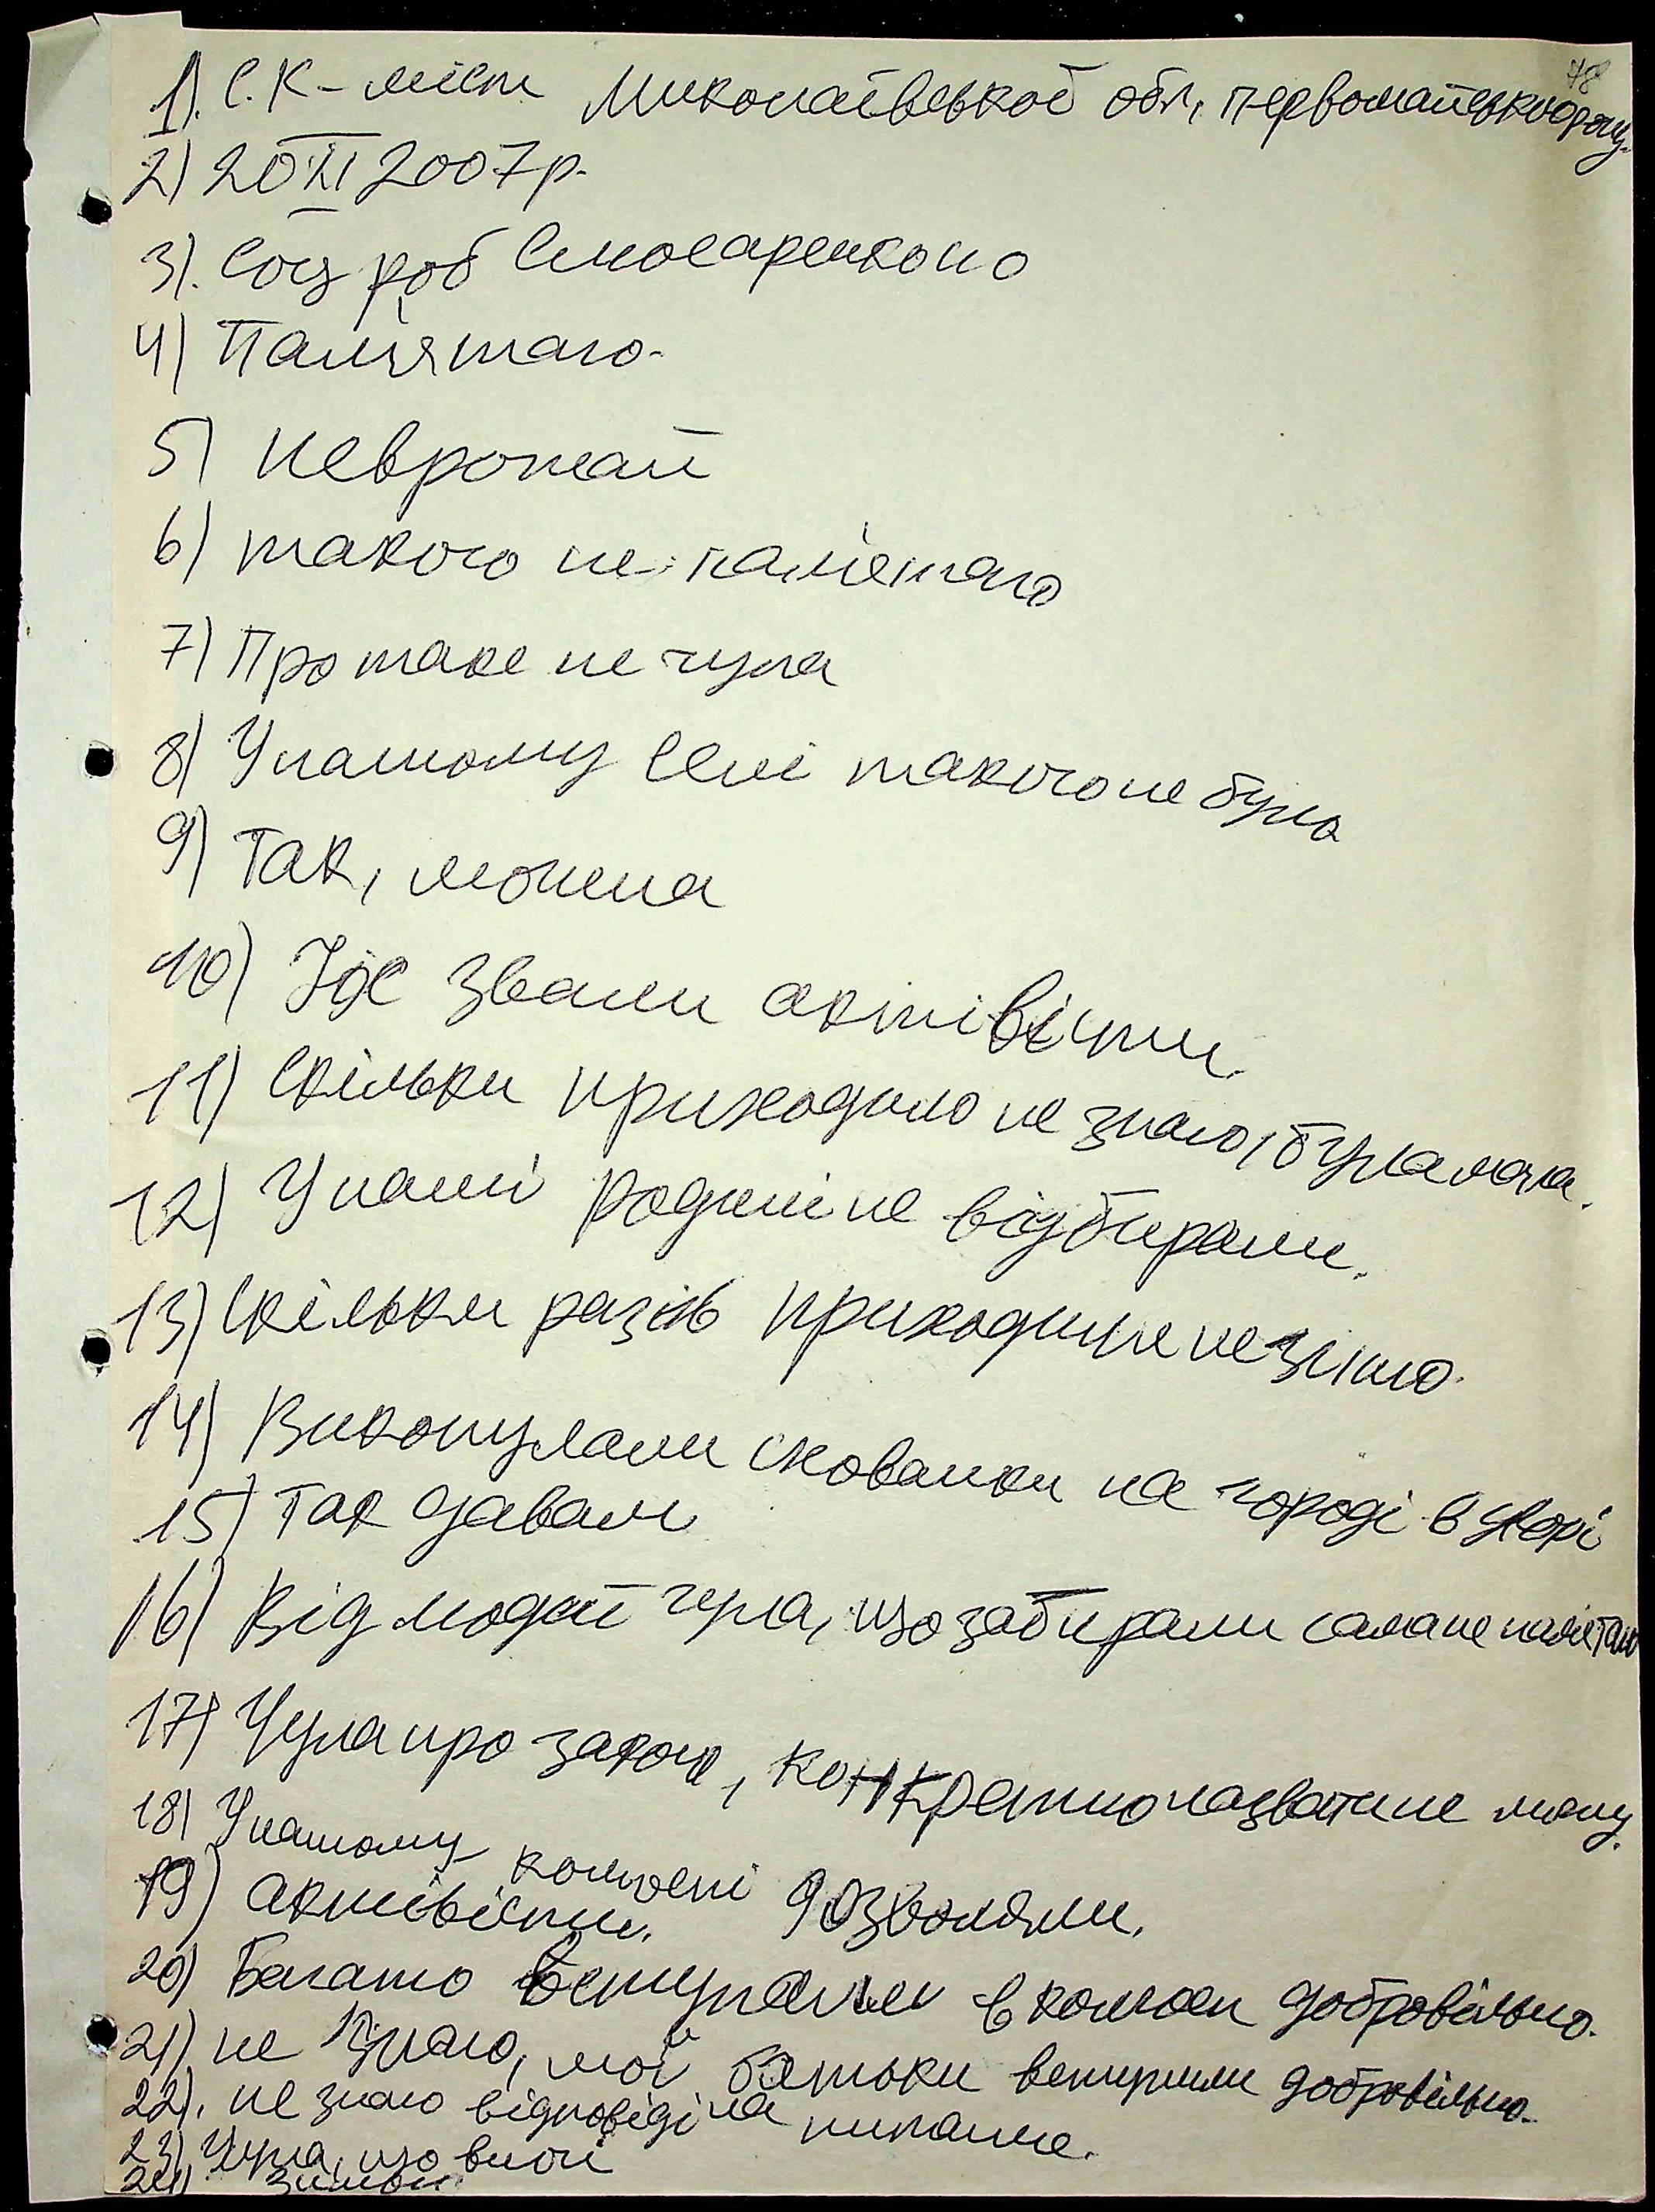 78
1). С. К-міст Миколаївської обл, первомайського рону.
2) 20 XI 2007р.
3). Соц роб Слюсаренконо
4) Пам'ятаю.
5) Неврожай
6) такого не памєтаю
7) Про таке не чула
8) У нашому селі такого не було
9) Так, можна
10) Їде звали актівісти.
11) Скільки приходило не знаю, була мала.
12) У нашій родині не відбирали.
13) Скільки разів приходили не знаю.
14) Викопували сховашки на городі в дворі
15) Так давали
16) Від людей чула, що забирали сама не памєтаю
17) Чула про закон, конкретно назвати не можу.
18) У нашому колхозі дозволяли.
19) актівісти.
20) Багато вступали в колхоз добровільно.
21). не знаю, мої батьки вступили добровільно.
22). не знаю відповіді на питання.
23) Чула, що вночі
24) зимою.